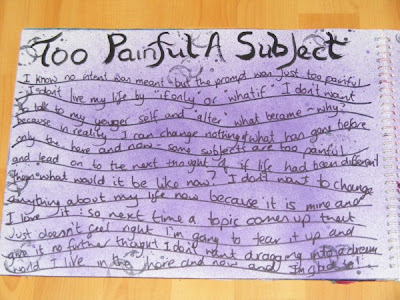 Too Painful A Subject
I know no intent was meant but the prompt was just too painful
I don't live my life by "if only" or "what if" I don't want
to talk to my younger self and "alter" what became - why?
because in reality I can change nothing of what has gone before
only the here and now - some subjects are too painful
and lead on to the next thought of if life had been different
then what would it be like now? I don't want to change
anything about my life now because it is mine and
I love it : so next time a topic comes up that
just doesn't feel right I'm going to tear it up and
give it no further thought I don't want dragging into a dream
world I live in the here and now and I'm glad I do!